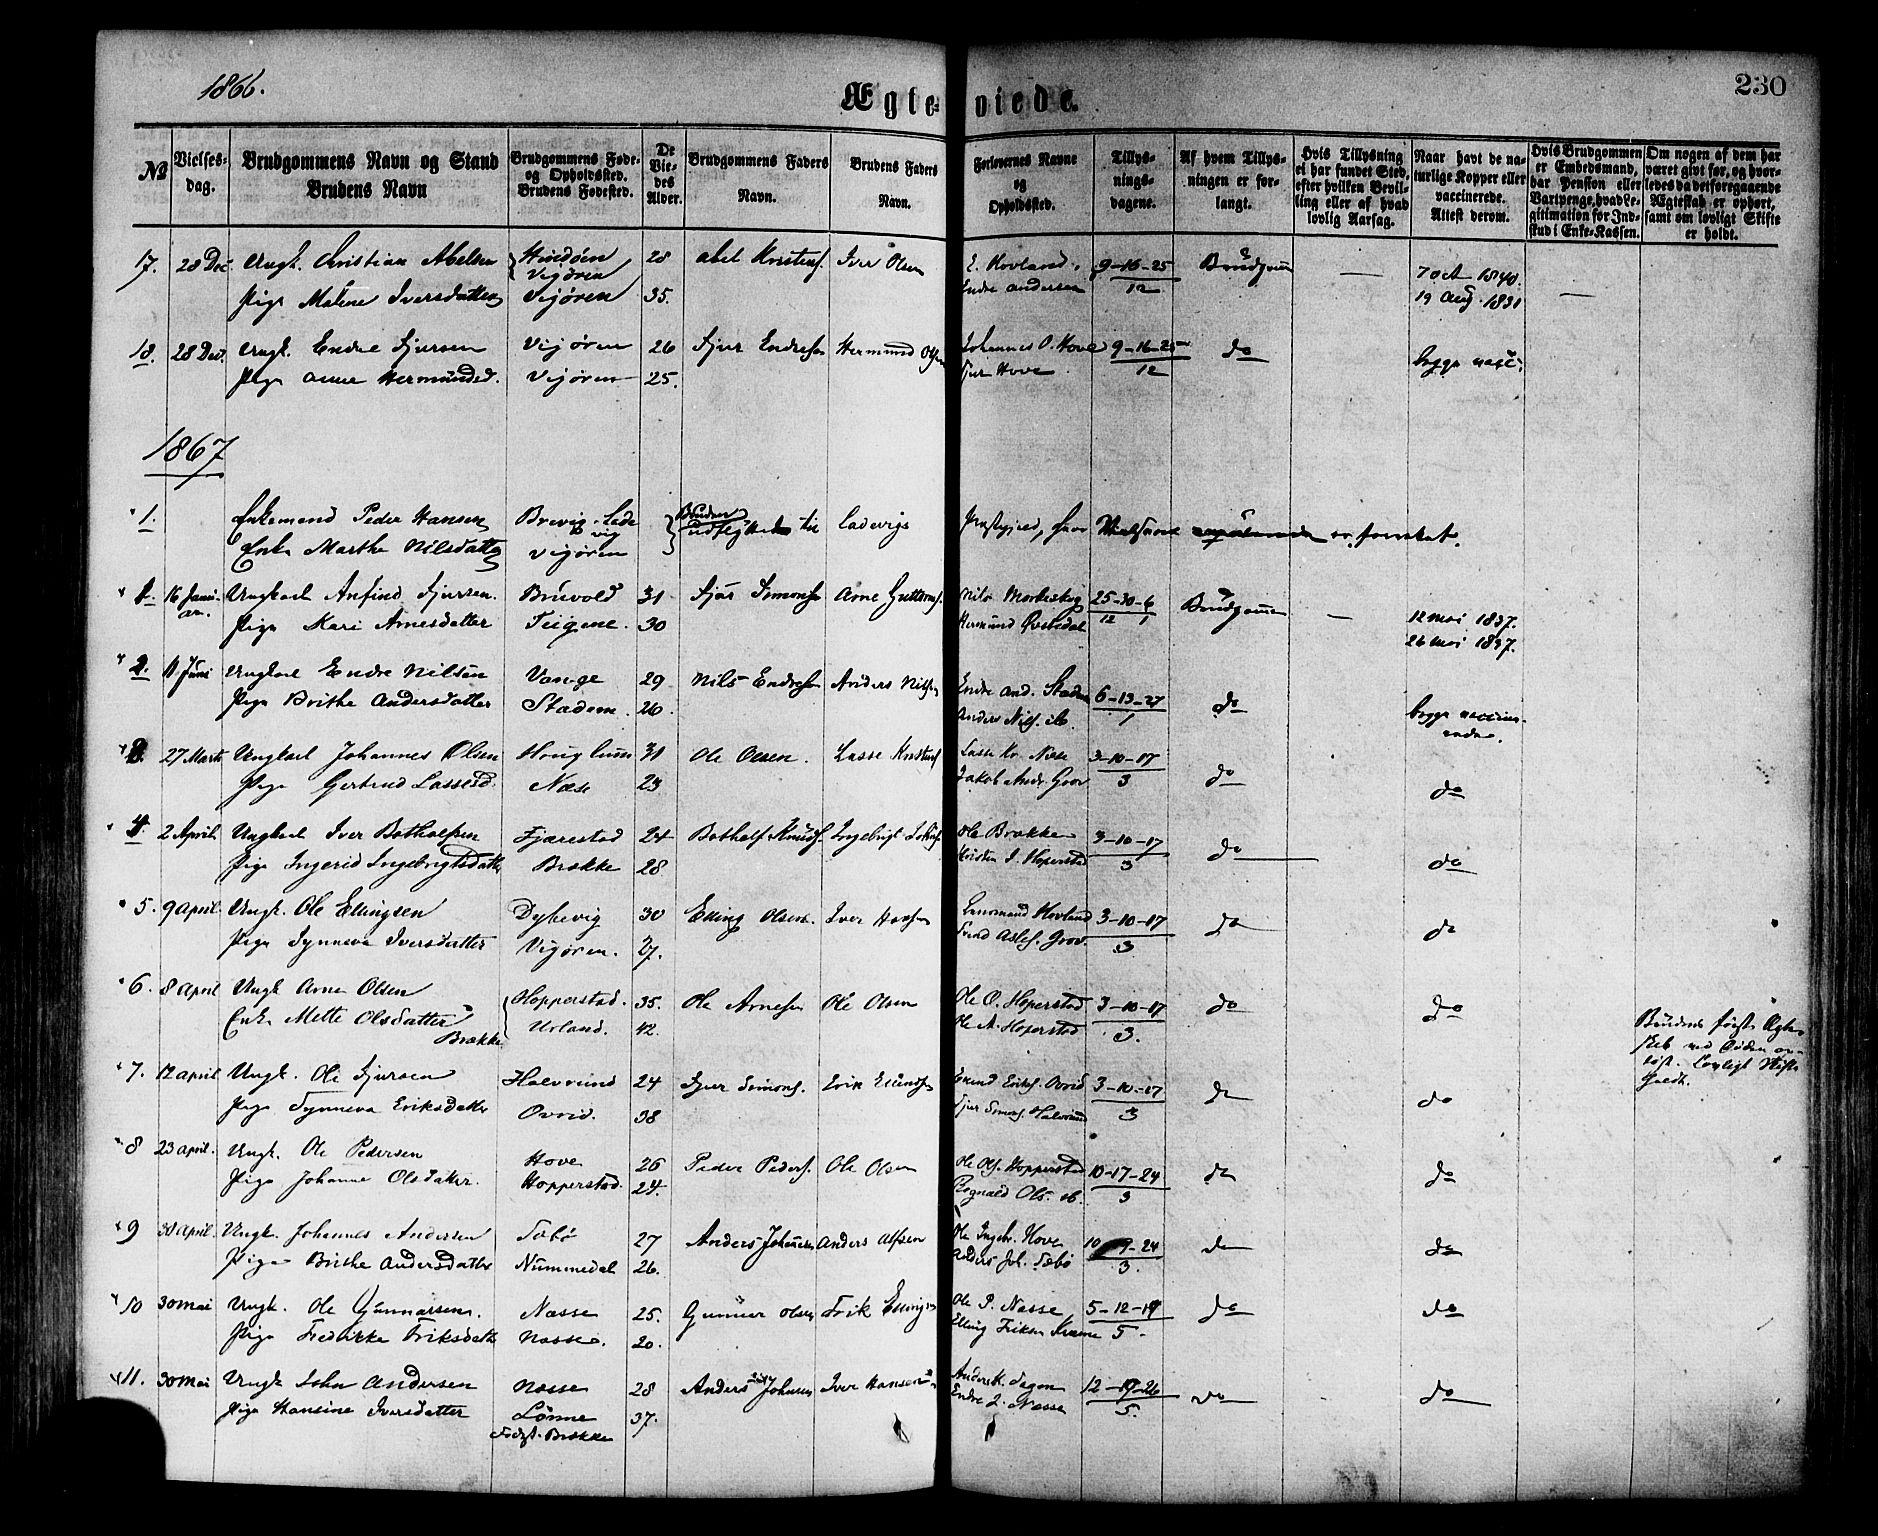 1866.
Ægteviede.
230
№
Vielsesdag.
Brudgommens Navn og Stand
Brudens Navn
Brudgommens Føde- og Opholdssted.
Brudens Fødested.
De Viedes Alder.
Brudgommens Faders Navn.
Brudens Faders Navn.
Forlovernes Navne og Opholdssted.
Tillysningsdagene.
Af hvem Tillysningen er forlangt.
Hvis Tillysning ei har fundet Sted, efter hvilken Bevilling eller af hvad lovlig Aarsag.
Naar havt de naturlige Kopper eller vaccinerede. Attest derom.
Hvis Brudgommen er Embedsmand, har Pension eller Vartpenge, hvad Legitimation for Indskud i Enke-Kassen.
Om nogen af dem har været gift før, og hvorledes da det foregaaende Ægteskab er ophørt, samt om lovligt Skifte er holdt.
17. 28 Dec Ungk. Christian Abelsen Hindöen Vigören 28 Abel Kristens. Iver Olsen E. Hovland. 9-16-25 Brudgom — 7 oct 1840. —
Pige Malene Iversdatter Vigören 35. Endre Andersen 12 19 Aug. 1831
18. 28 Dec. Ungk. Endre Sjursen Vigören 26 Sjur Endresen Hermund Olsen Johannes O. Hove 9-16-25 do begge vacc.
Pige Anne Hermundsd. Vigören 25. Sjur Hove 12
1867
1. Enkemand Peder Hansen Brevig Ladevig { Bruden udflyttet til Ladevigs Præstegjeld, hvor Vielsen er forrettet.
Enke Marthe Nilsdatter Vigören
1. 16 Januar. Ungkarl Anfind Sjursen. Brúvold 31 Sjur Simons. Arne Guttorms. Nils Morkeskog 25-30-6 Brudgom — 12 mai 1837.
Pige Kari Arnesdatter Teigene. 30 Hermund Övsthedal 12 1 26 mai 1837.
2. 11 Juni Ungkarl Endre Nilsen Vange 29 Nils Endresen Anders Nilsen Endre And. Stadem 6-13-27 do begge vaccinerede.
Pige Brithe Andersdatter Stadem. 26. Anders Nils. ib 1
3. 27 Marts Ungkarl Johannes Olsen Houglum 31 Ole Olsen. Lasse Knuts. Lasse Kn. Næse 3-10-17 do do
Pige Gertrud Lassesd. Næse 23 Jakob Andr. Grov 3
4. 2 April Ungkarl Iver Botholfsen Fjærestad 24 Botholf Knuds. Ingebrigt Johns. Ole Brække 3-10-17 do — do
Pige Ingerid Ingebrigtsdatter Brække 28 Kristen I. Hoperstad 3
5. 9 April. Ungk. Ole Ellingsen Dybevig 30 Elling Olsen. Iver Hansen Lensmand Hovland 3-10-17 do do
Pige Synneva Iversdatter Vigören. 27. Svend Aslef. Grov. 3
6. 8 April Ungk Arne Olsen Hopperstad. 35. Ole Arnesen Ole Olsen Ole O. Hoperstad 3-10-17 do do Brudens første Ægteskab ved Döden oplöst. Lovligt Skifte holdt.
Enke Mette Olsdatter Brække Urland. 42. Ole A. Hoperstad 3.
7. 12 april Ungk. Ole Sjursen Halvrund 24 Sjur Simons. Erik Erlends. Erlend Eriks. Ovrid 3-10-17 do do
Pige Synneva Eriksdatter Ovrid. 38 Sjur Simons. Halvrund 3
8 23 april. Ungk. Ole Pedersen Hove 26 Peder Peders. Ole Olsen Ole Ols. Hopperstad 10-17-24 do do
Pige Johanne Olsdatter. Hopperstad. 24. Rognald Ols. ib. 3
9 30 april. Ungk. Johannes Andersen Sæbö 27 Anders Johannesen Anders Alfsen Ole Ingebr. Hove 10 9-24 do do
Pige Brithe Andersdatter Nummedal 26. Anders Joh. Sæbö 3.
10 30 mai Ungk. Ole Gunnarsen. Næsse 25. Gunner Olsen Erik Ellings. Ole P. Næsse 5-12-19 do do
Pige Fredrikke Eriksdatter Næsse. 20. Elling Eriksen Kræme 5.
11. 30 Mai Ungk John Andersen Næsse 28 Anders Johnsen Iver Hansen Anders K. Sagen 12-19-26 do do
Pige Hansine Iversdatter Lönne 37. Endre L. Næsse 5.
Födgt. Brække